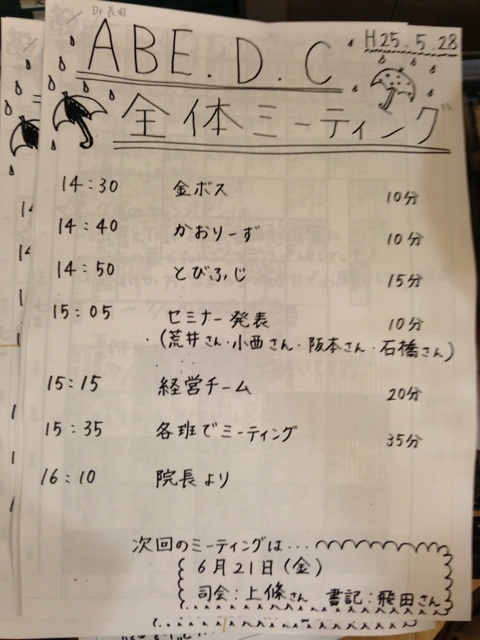 Dr 長田
ABE.D.C
H25.5.28
全体ミーティング
14:30 金ボス 10分
14:40 かおりーず 10分
14:50 とびふじ 15分
15:05 セミナー発表 10分
(荒井さん・小西さん・阪本さん・石橋さん)
15:15 経営チーム 20分
15:35 各班でミーティング 35分
16:10 院長より
次回のミーティングは...
6月21日(金)
司会:上條さん 書記:飛田さん